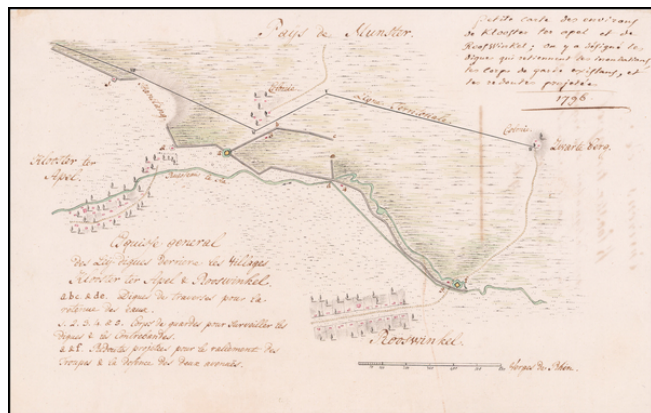 Pays de Munster.
petite carte des environs
de Klooster ter apel et de
Rooswinkel; on y a désigné les
digues qui retiennent les inondations
les corps de garde existans, et
les redoutes projetées
1796
Colonie
Ligne
Colonie
Zwarteberg.
Klooster ter
Apel.
Esquise general
Des Ley digues Derriere les Villages
Klooster ter Apel & Rooswinkel.
abc & de. Digues de traverses pour la
retenue des Eaux.
1. 2. 3. 4 & 5. Corps de gardes pour Surveiller les
Digues & les Contrebandes.
Redoutes projetées pour le rallement des
Troupes & la defence des deux avenues.
Rooswinkel.
Verges du Rhin.